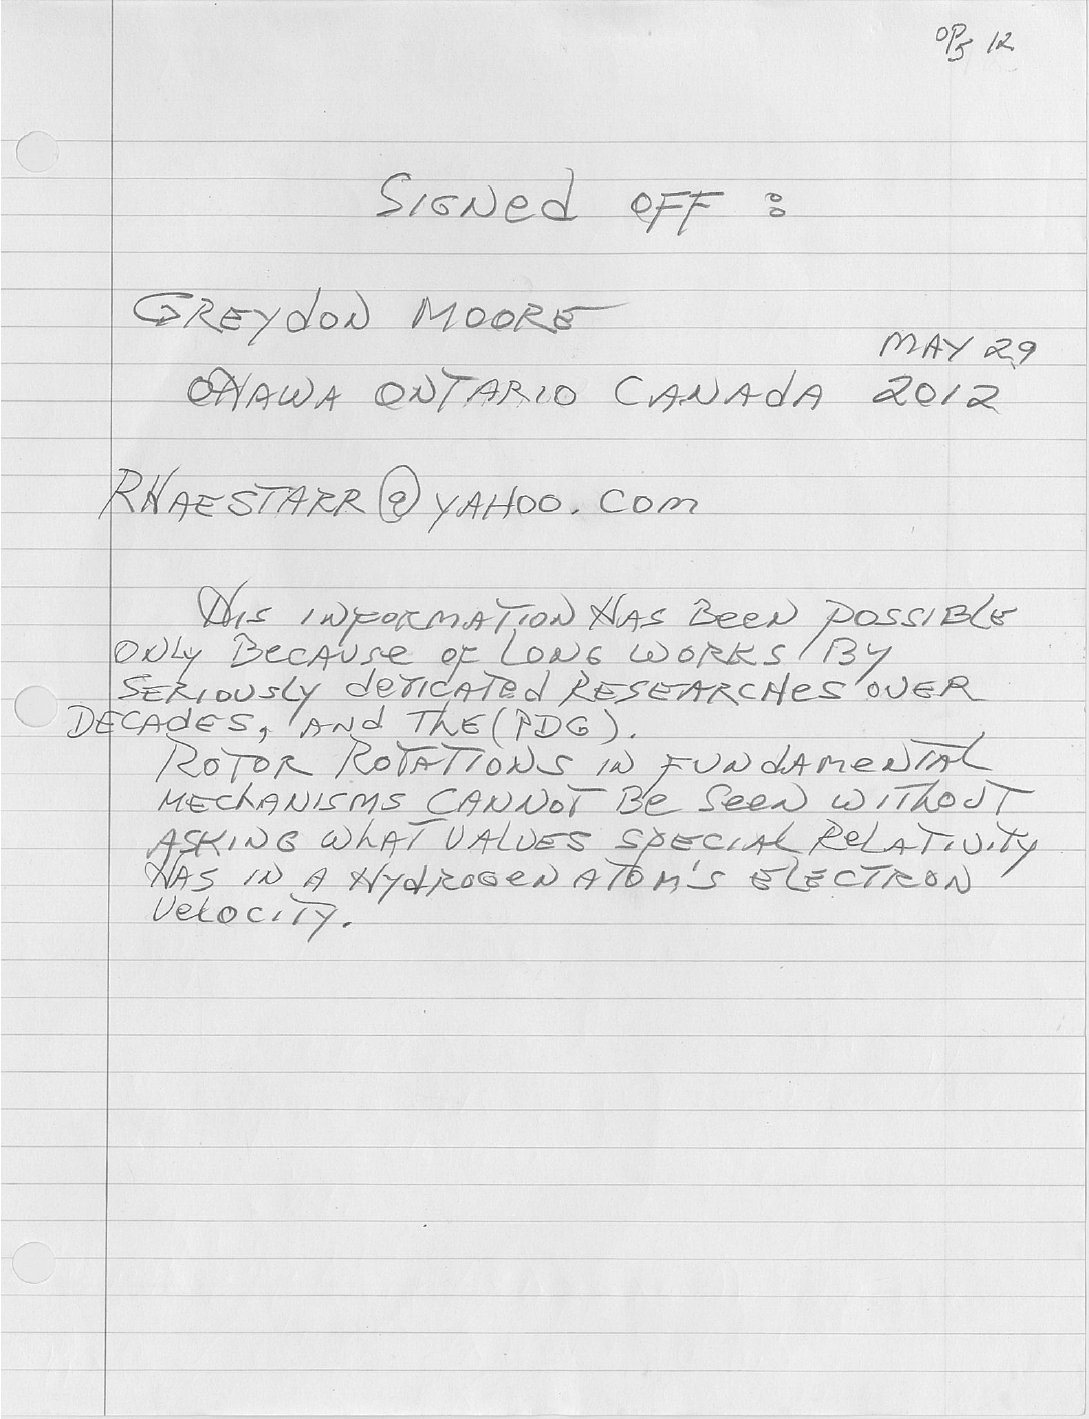 OP5 12
Signed OFF :
GREYdON MOORE
MAY 29
OTTAWA ONTARIO CANAdA 2012
RHAESTARR@YAHOO.COM
THIS INFORMATION HAS BeeN POSSIBLE
ONLY BeCAUSe OF LONG WORKS BY
SERIOUSLY dedicATed RESEARCHeS OVER
DECADES, ANd ThE (PDG).
ROTOR ROTATIONS IN FUNdAMeNTAL
MEChANISMS CANNOT Be SeeN WIThOUT
ASKING WhAT VALUES SPECIAL ReLATIVITY
HAS IN A HYdROGeN ATOM'S ELECTRON
VeLOCITY.